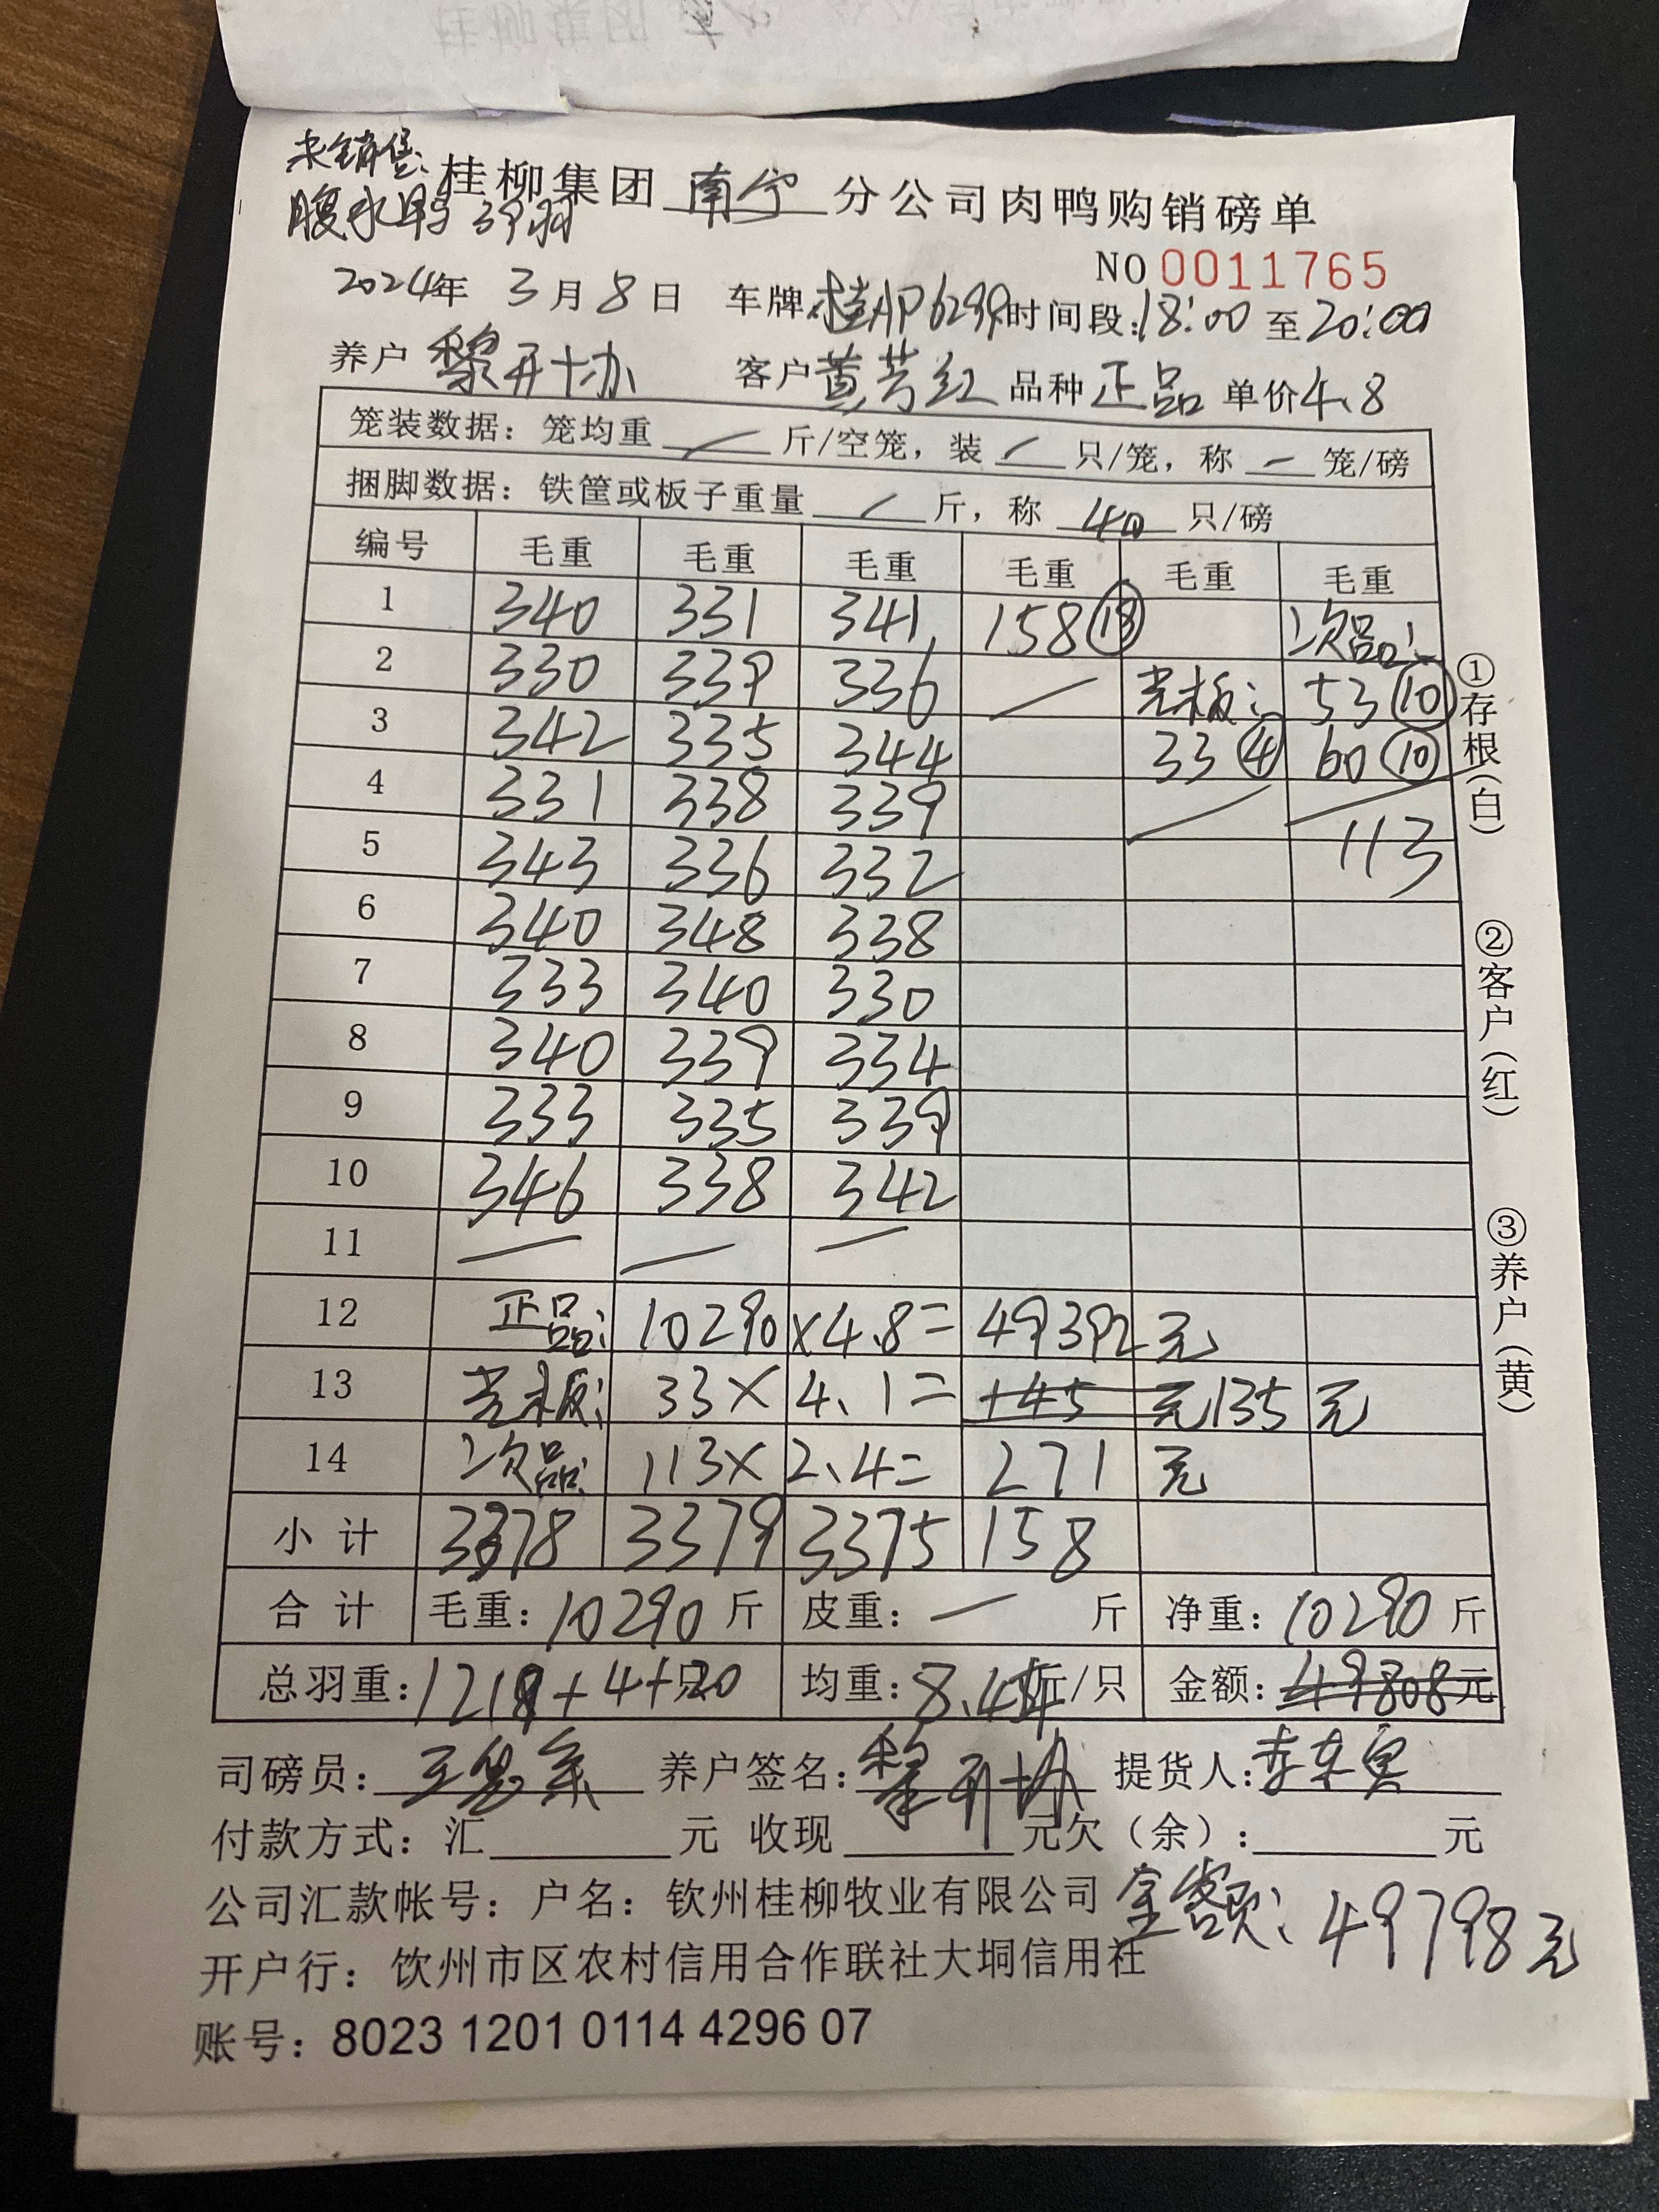 未销售:
腹水鸭 3羽
桂柳集团 南宁 分公司肉鸭购销磅单
NO 0011765
2024年 3月8日 车牌:桂AP6299 时间段:18:00 至 20:00
养户 黎开协 客户 黄芳红 品种 正品 单价 4.8
笼装数据:笼均重 / 斤/空笼,装 / 只/笼,称 一 笼/磅
捆脚数据:铁筐或板子重量 / 斤,称 40 只/磅
编号 毛重 毛重 毛重 毛重 毛重 毛重
1 340 331 341 158⑱ 次品:
2 330 339 336 / 老板: 53⑩
3 342 335 344 33④ 60⑩
4 331 338 339 / /
5 343 336 332 113
6 340 348 338
7 333 340 330
8 340 339 334
9 333 335 339
10 346 338 342
11 / / /
12 正品: 10290 ×4.8= 49392 元
13 老板: 33× 4.1= 145 元 135 元
14 次品: 113× 2.4= 271 元
小计 3378 3379 3375 158
合计 毛重:10290 斤 皮重:一 斤 净重:10290 斤
总羽重:1218+4+20只 均重:8.45斤/只 金额:49808元
司磅员: 养户签名:黎开协 提货人:
付款方式:汇 元 收现 元欠(余): 元
公司汇款帐号:户名:钦州桂柳牧业有限公司 金额:49798元
开户行:饮州市区农村信用合作联社大垌信用社
账号:8023 1201 0114 4296 07
①存根(白)
②客户(红)
③养户(黄)